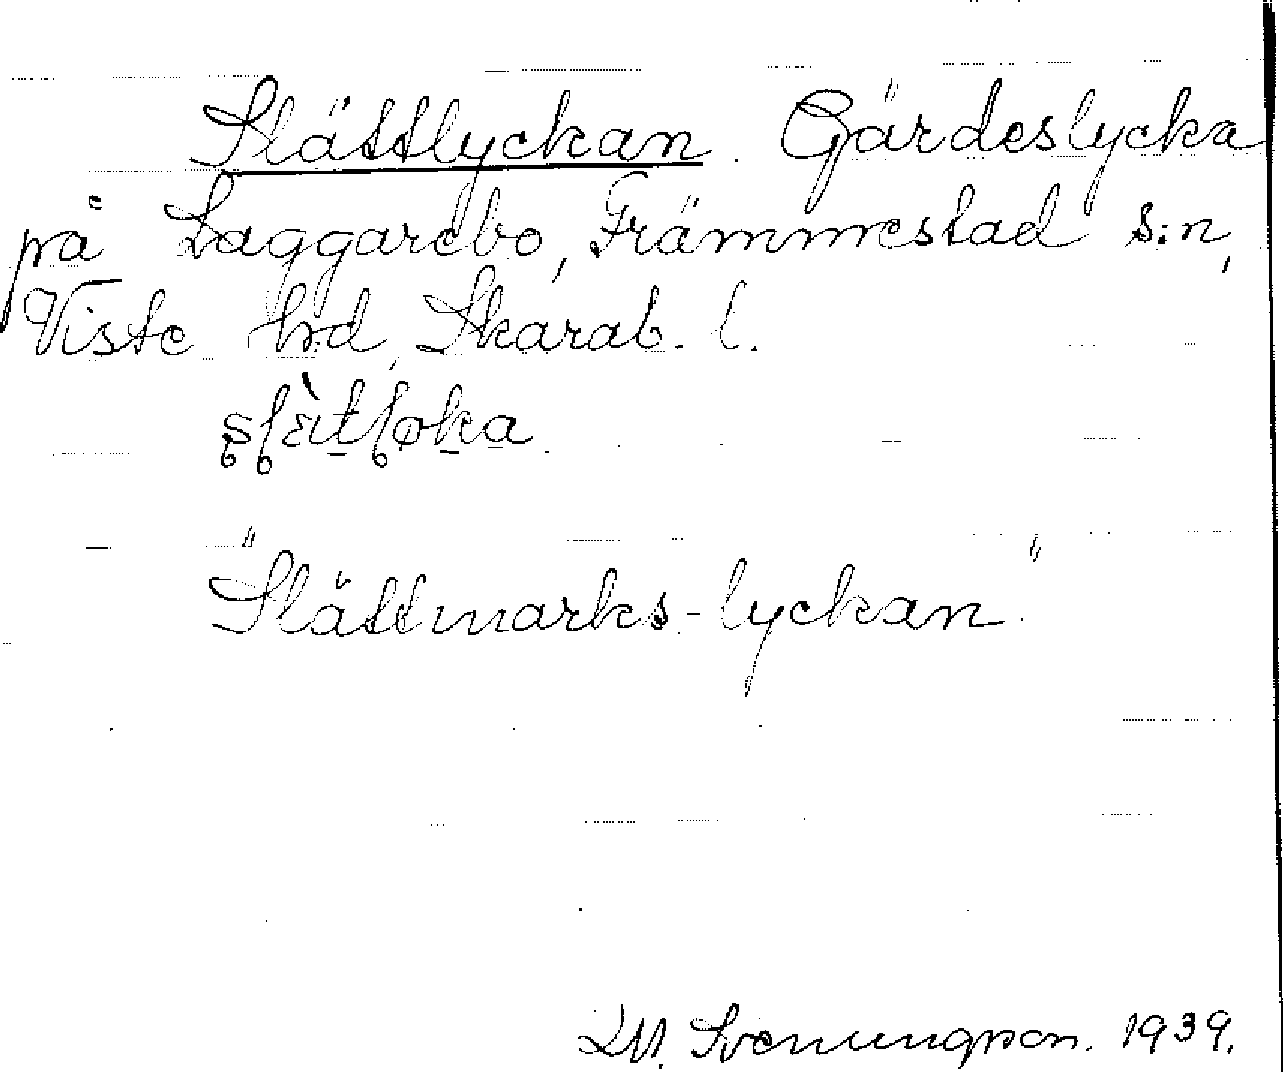 Slättlyckan. Gärdeslycka
på Laggarebo, Främmestad s:n,
Viste hd, Skarab. l.
"Slättmarks-lyckan"
Svenungsson. 1939.